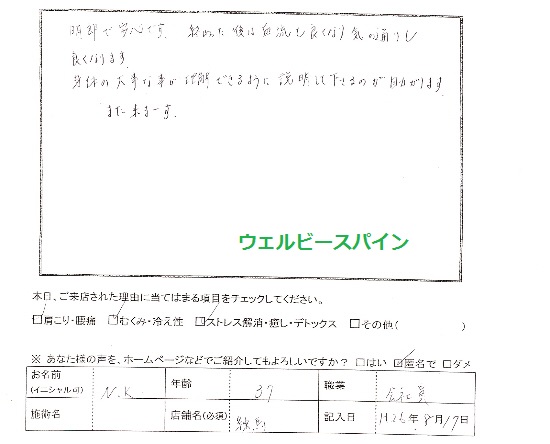 明確で安心です。終わった後は血流も良くなり気の通りも
良くなります。
身体の大事な事が理解できるように説明して下さるのが助かります。
また来まーす。
ウェルビースパイン
本日、ご来店された理由に当てはまる項目をチェックしてください。
☑肩こり・腰痛 ☑むくみ・冷え性 ☑ストレス解消・癒し・デトックス □その他( )
※ あなた様の声を、ホームページなどでご紹介してもよろしいですか？ □はい ☑匿名で □ダメ
お名前(イニシャル可) N.K 年齢 37 職業 会社員
施術名 店舗名(必須) 練馬 記入日 H26年8月17日